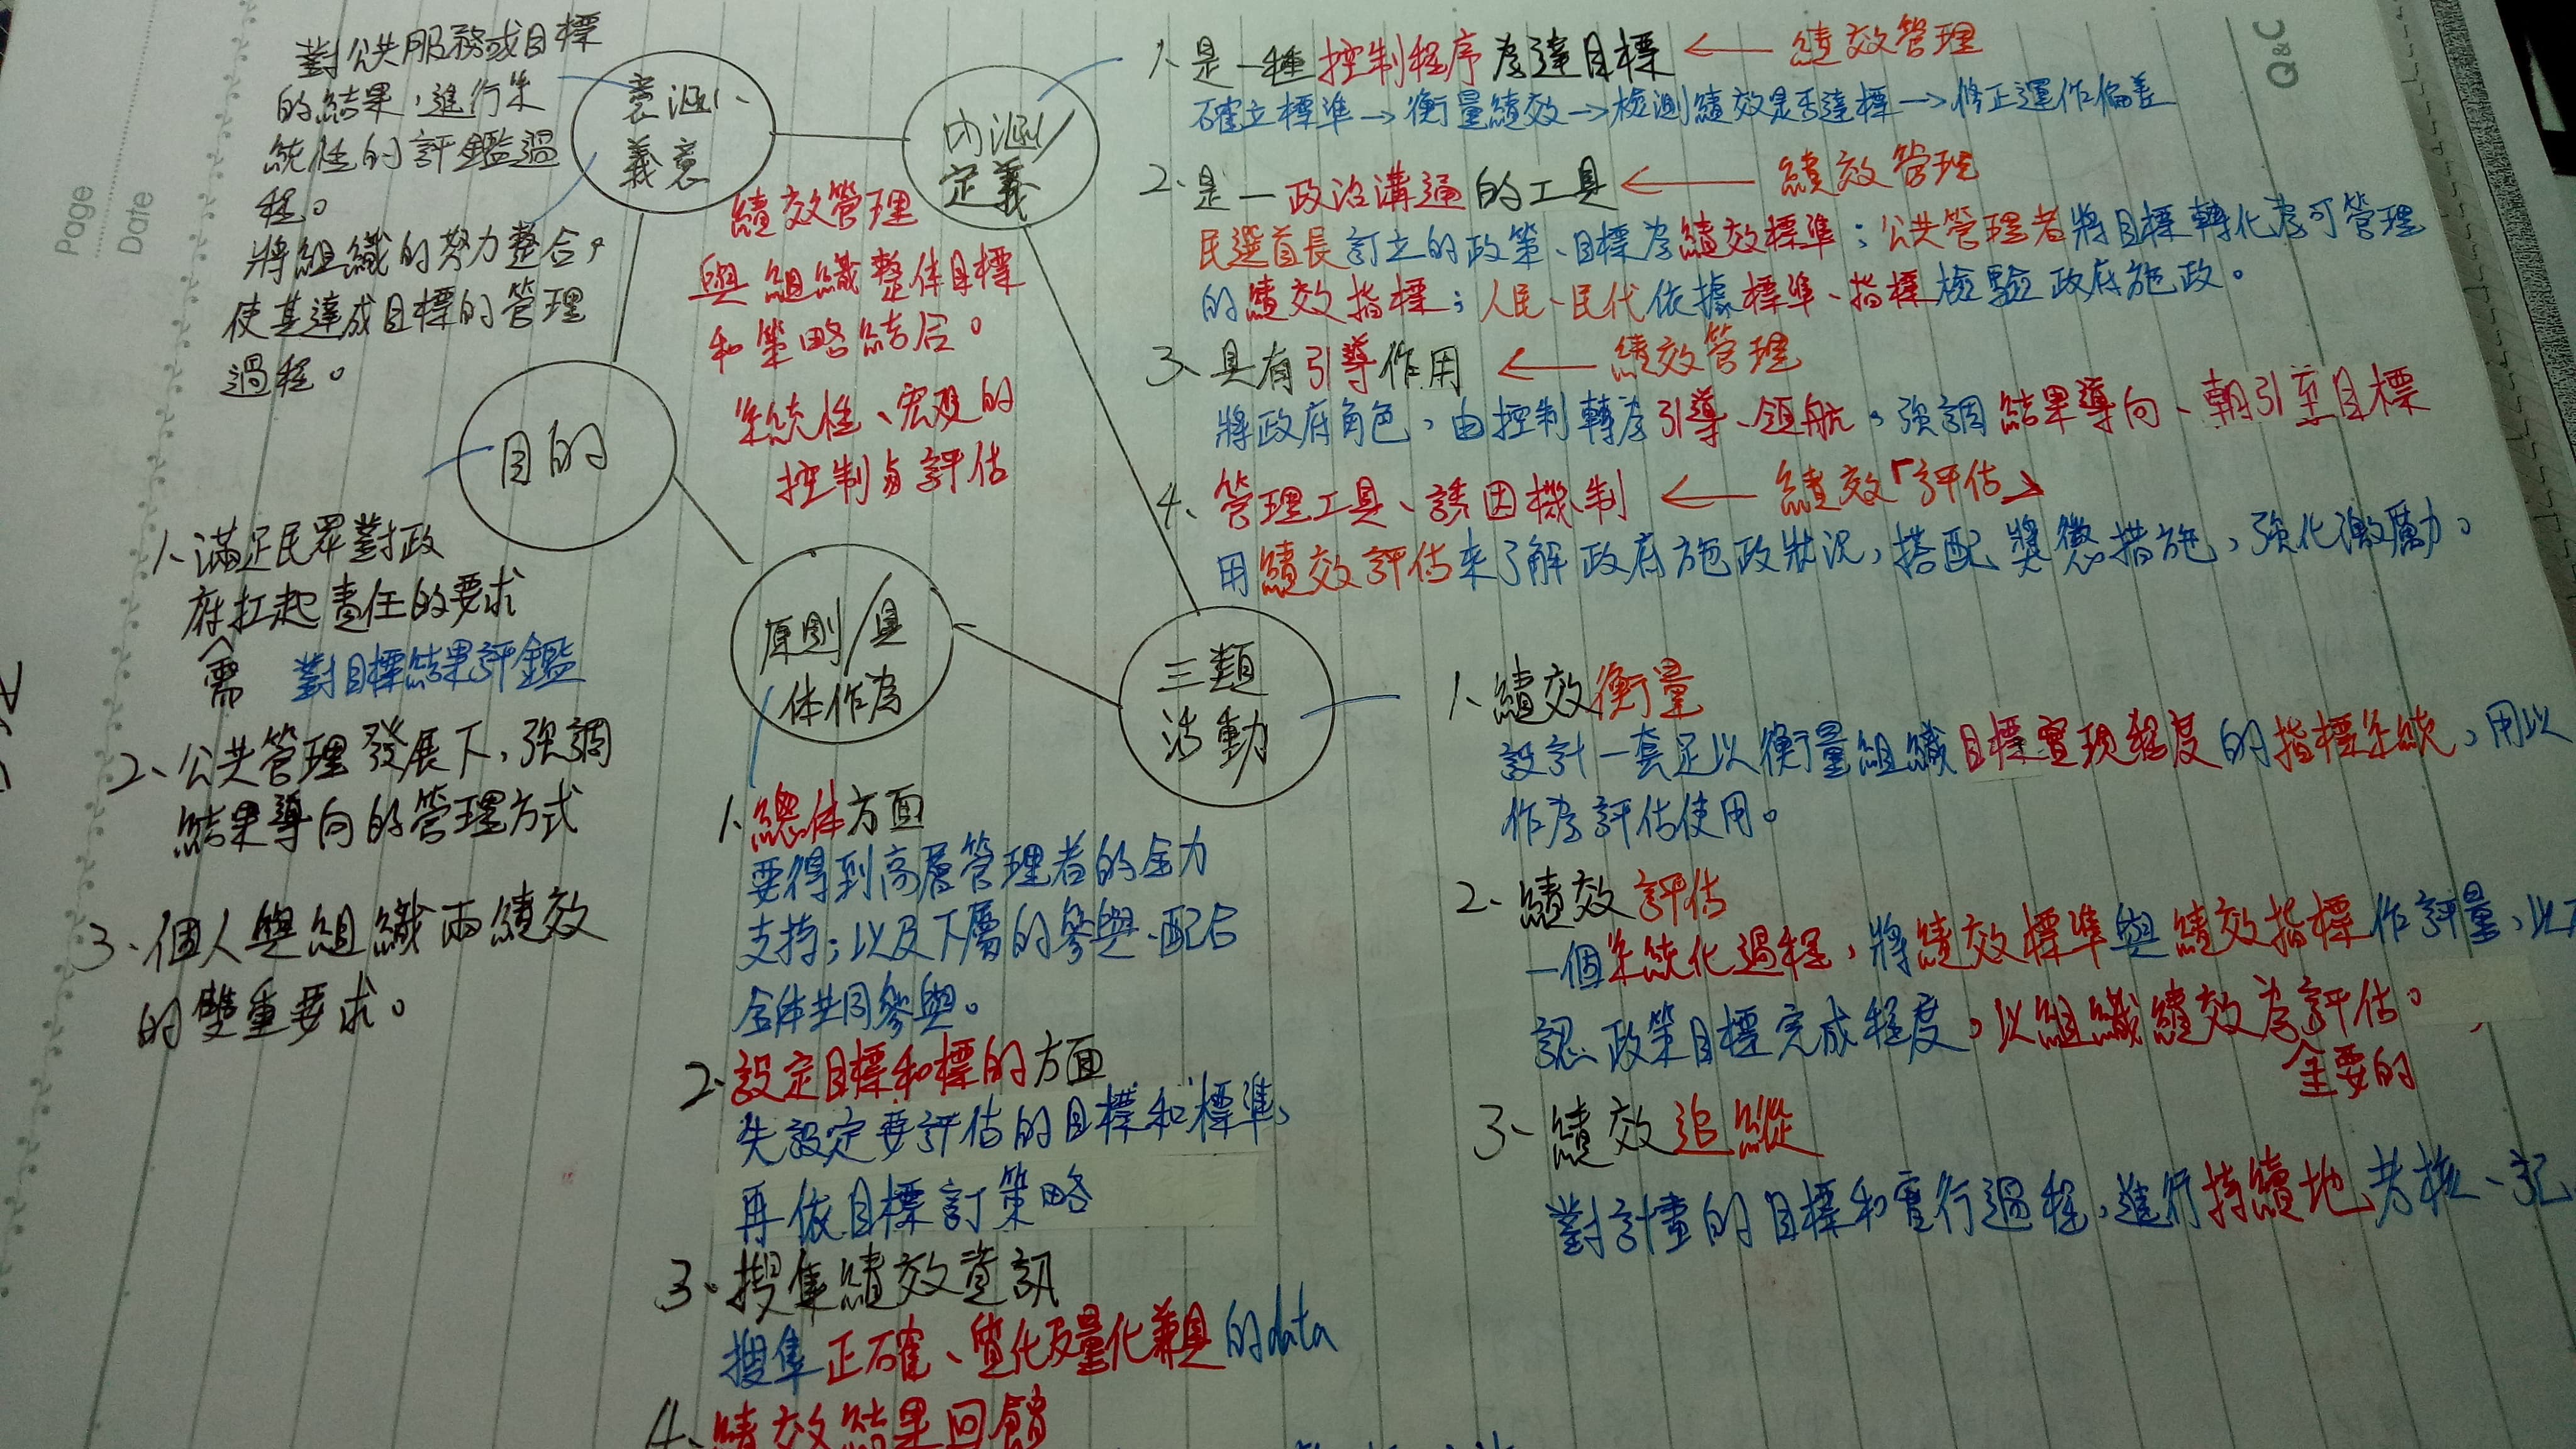 Page
Date
Q&C
對公共服務或目標
的結果，進行系
統性的評鑑過
程。
將組織的努力整合，
使其達成目標的管理
過程。
意涵、
義意
內涵/
定義
績效管理
與組織整体目標
和策略結合。
系統性、宏觀的
控制與評估
目的
1、滿足民眾對政
府扛起責任的要求
需 對目標結果評鑑
2、公共管理發展下，強調
結果導向的管理方式
3、個人與組織兩績效
的雙重要求。
原則/具
体作為
三類
活動
1、是一種控制程序為達目標 ← 績效管理
確立標準→衡量績效→檢測績效是否達標→修正運作偏差
2、是一政治溝通的工具 ← 績效管理
民選首長訂立的政策、目標為績效標準；公共管理者將目標轉化為可管理
的績效指標；人民、民代依據標準、指標檢驗政府施政。
3、具有引導作用 ← 績效管理
將政府角色，由控制轉為引導、領航，強調結果導向、朝引至目標
4、管理工具、誘因機制 ← 績效「評估」
用績效評估來了解政府施政狀況，搭配獎懲措施，強化激勵力。
1、績效衡量
設計一套足以衡量組織目標實現程度的指標系統，用以
作為評估使用。
2、績效評估
一個系統化過程，將績效標準與績效指標作評量，以
認政策目標完成程度，以組織績效為評估。
主要的
3、績效追蹤
對計畫的目標和實行過程，進行持續地考核、記
1、總体方面
要得到高層管理者的全力
支持；以及下層的參與、配合
全体共同參與。
2、設定目標和標的方面
先設定要評估的目標和標準，
再依目標訂策略
3、搜集績效資訊
搜集正確、質化及量化兼具的data
4、績效結果回饋